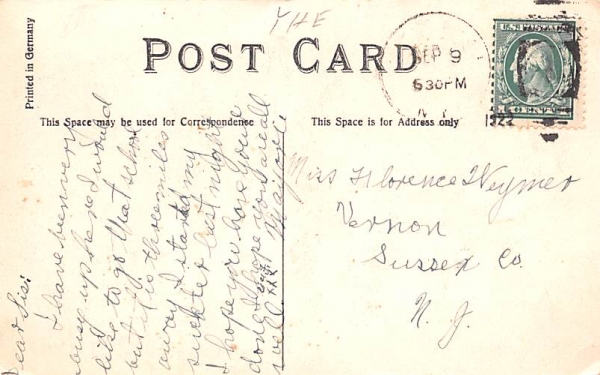 THE
Printed in Germany
POST CARD
SEP 9
530PM
N.Y.
1922
This Space may be used for Correspondence
This Space is for Address only
Dear Sis:
I have been very
busy up here I would
like to go that school
but it is three miles
away I started my
last night
I hope you have yours
done I hope you are all
well
Miss Florence Weymer
Vernon
Sussex Co.
N. J.